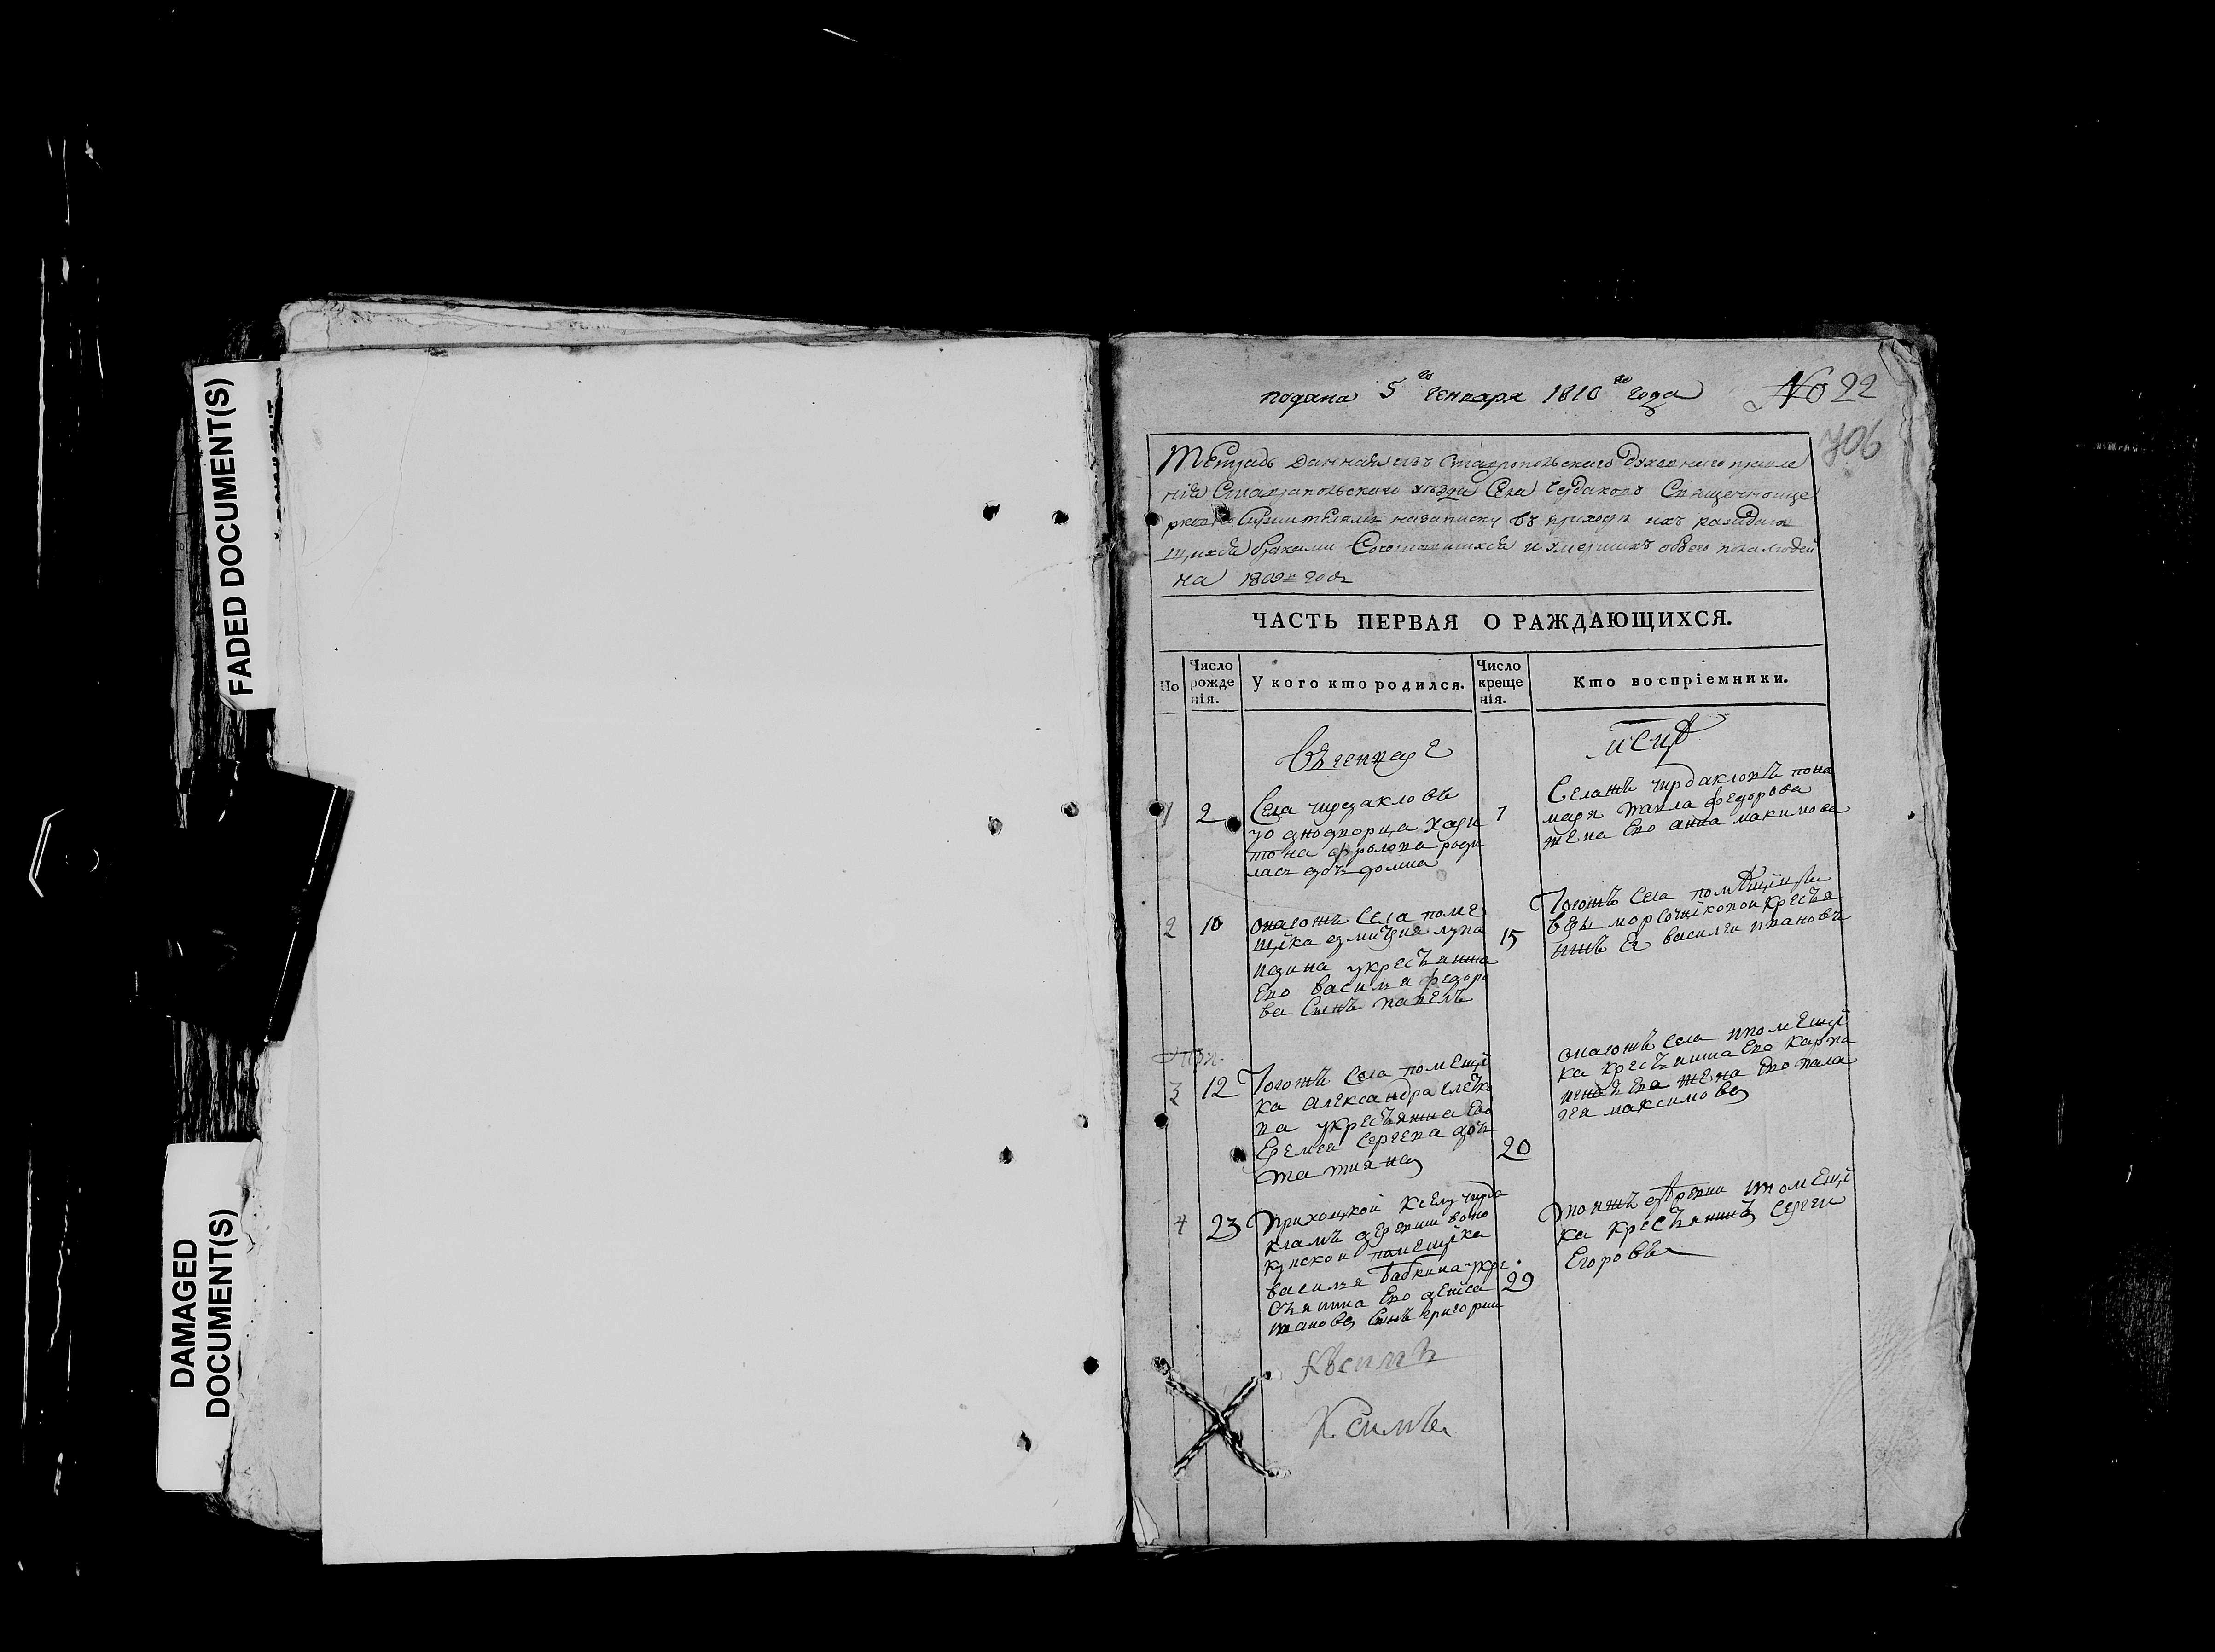 FADED DOCUMENT(S)
DAMAGED
DOCUMENT(S)
подана 5го генваря 1810го года
No 22
706
Тетрадь данная изъ Ставропольскаго духовнаго правле
нія Ставропольскаго уезда Села Чердаковъ Священноце
рковно Служителямъ на записку въ приходе ихъ раждаю
щихся браками Сочетавшихся и умершихъ обоего пола людей
на 1809й годъ
ЧАСТЬ ПЕРВАЯ О РАЖДАЮЩИХСЯ.
Но
Число
рожде
нія.
У кого кто родился.
Число
креще
нія.
Кто воспріемники.
Въ генваре
1
2
Села чирдакловъ
у однодворца хари
тона фролова роди
лась дочь домна
7
Селажъ чирдакловъ поно
маря павла федорова
жена Ево анна макимова
2
10
онагожъ Села поме
щика
крестьянина
Ево василья федоро
ва Сынъ павелъ
15
Тогожъ Села помещицы
крестья
нинъ Ее василеи ивановъ
3
12
Тогожъ Села помещи
ка александра
на у крестьянина Ево
Еремея Сергеева дочь
татияна
20
онагожъ Села помещи
ка крестьянина Ево карпа
жена Ево пела
гея максимова
4
23
Приходской к селу чирда
кламъ деревни
помещика
василья бабкина у кре
стьянина Ево дениса
Сынъ григории
29
тояжъ деревни помещи
ка крестьянинъ Сергеи
Егоровъ